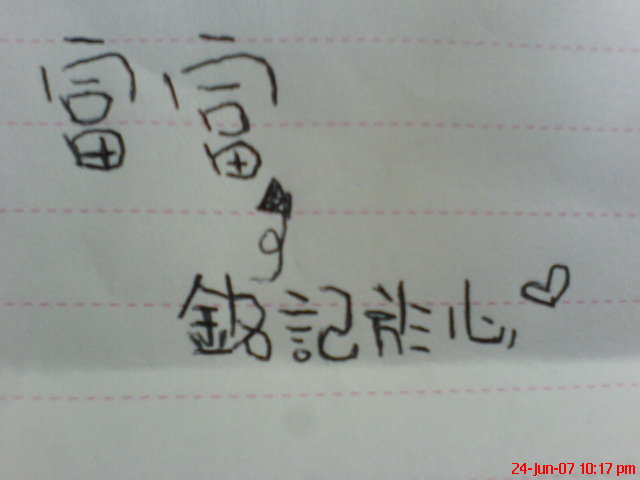 富富
銘記於心
24-Jun-07 10:17 pm